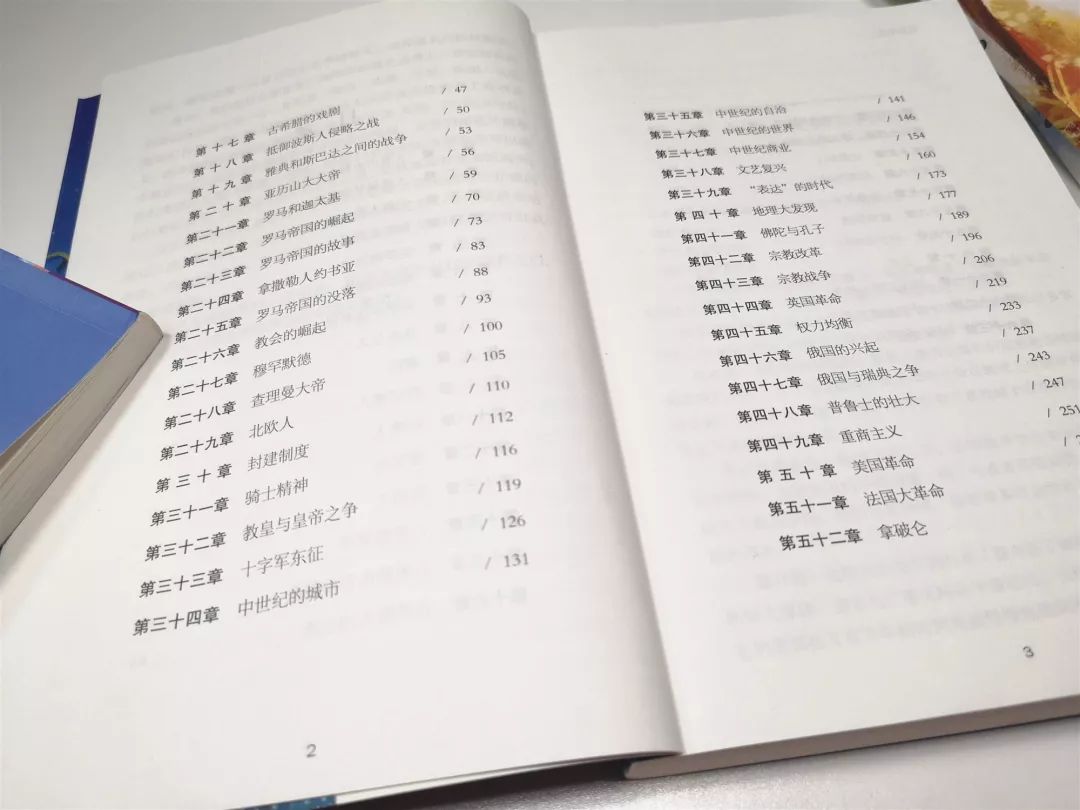 第十七章 古希腊的戏剧 / 47
第十八章 抵御波斯人侵略之战 / 50
第十九章 雅典和斯巴达之间的战争 / 53
第二十章 亚历山大大帝 / 56
第二十一章 罗马和迦太基 / 59
第二十二章 罗马帝国的崛起 / 70
第二十三章 罗马帝国的故事 / 73
第二十四章 拿撒勒人约书亚 / 83
第二十五章 罗马帝国的没落 / 88
第二十六章 教会的崛起 / 93
第二十七章 穆罕默德 / 100
第二十八章 查理曼大帝 / 105
第二十九章 北欧人 / 110
第三十章 封建制度 / 112
第三十一章 骑士精神 / 116
第三十二章 教皇与皇帝之争 / 119
第三十三章 十字军东征 / 126
第三十四章 中世纪的城市 / 131
2
第三十五章 中世纪的自治 / 141
第三十六章 中世纪的世界 / 146
第三十七章 中世纪商业 / 154
第三十八章 文艺复兴 / 160
第三十九章 “表达”的时代 / 173
第四十章 地理大发现 / 177
第四十一章 佛陀与孔子 / 189
第四十二章 宗教改革 / 196
第四十三章 宗教战争 / 206
第四十四章 英国革命 / 219
第四十五章 权力均衡 / 233
第四十六章 俄国的兴起 / 237
第四十七章 俄国与瑞典之争 / 243
第四十八章 普鲁士的壮大 / 247
第四十九章 重商主义 / 251
第五十章 美国革命 /
第五十一章 法国大革命
第五十二章 拿破仑
3